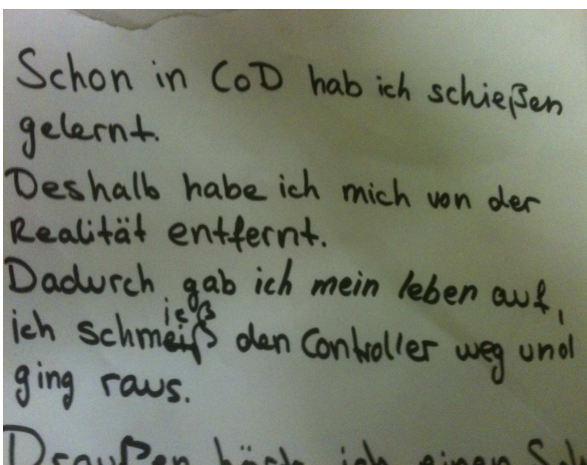 Schon in CoD hab ich schießen
gelernt.
Deshalb habe ich mich von der
Realität entfernt.
Dadurch gab ich mein leben auf,
ich schmieß den Controller weg und
ging raus.
Draußen hörte ich einen